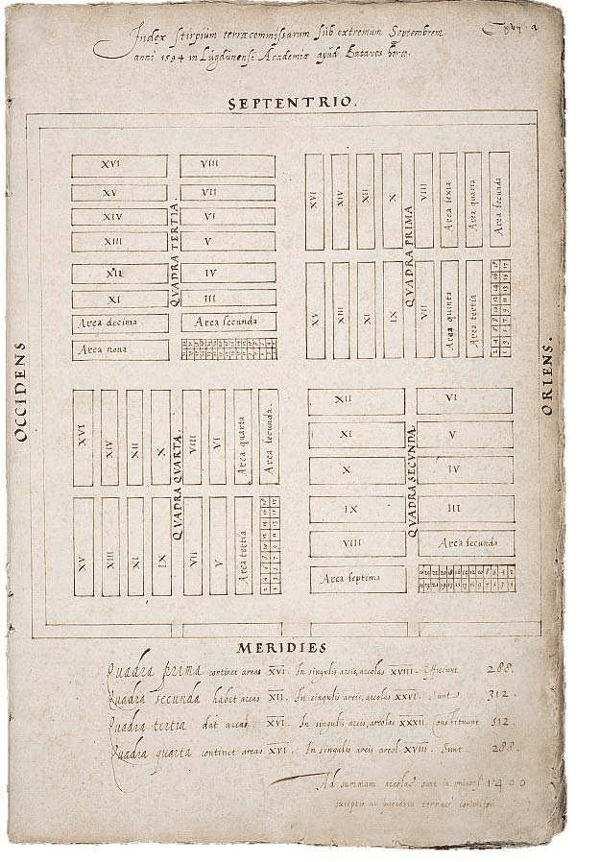 Index stirpium terrae commissarum sub extremum Septembrem
anni 1594 in Lugdunensi Academia apud Batavos horto.
SEPTENTRIO.
OCCIDENS
ORIENS.
QVADRA TERTIA.
XVI VIII
XV VII
XIV VI
XIII V
XII IV
XI III
Area decima Area secunda
Area nona
QVADRA PRIMA
XVI XIV XII X VIII Area sexta Area quarta Area secunda
XV XIII XI IX VII Area quinta Area tertia
QVADRA QVARTA.
XVI XIV XII X VIII VI Area quarta Area secunda.
XV XIII XI IX VII V Area tertia
QVADRA SECVNDA
XII VI
XI V
X IV
IX III
VIII Area secunda
Area septima
MERIDIES
Quadra prima continet areas XVI. In singulis areis, areolas XVIII. Efficiunt 288.
Quadra secunda habet areas XII. In singulis areis, areolas XXVI. Sunt 312.
Quadra tertia dat areas XVI. In singulis areis, areolas XXXII. constituunt 512.
Quadra quarta continet areas XVI. In singulis areis areol. XVIII. Sunt 288.
Ad summam areolae sunt 1400